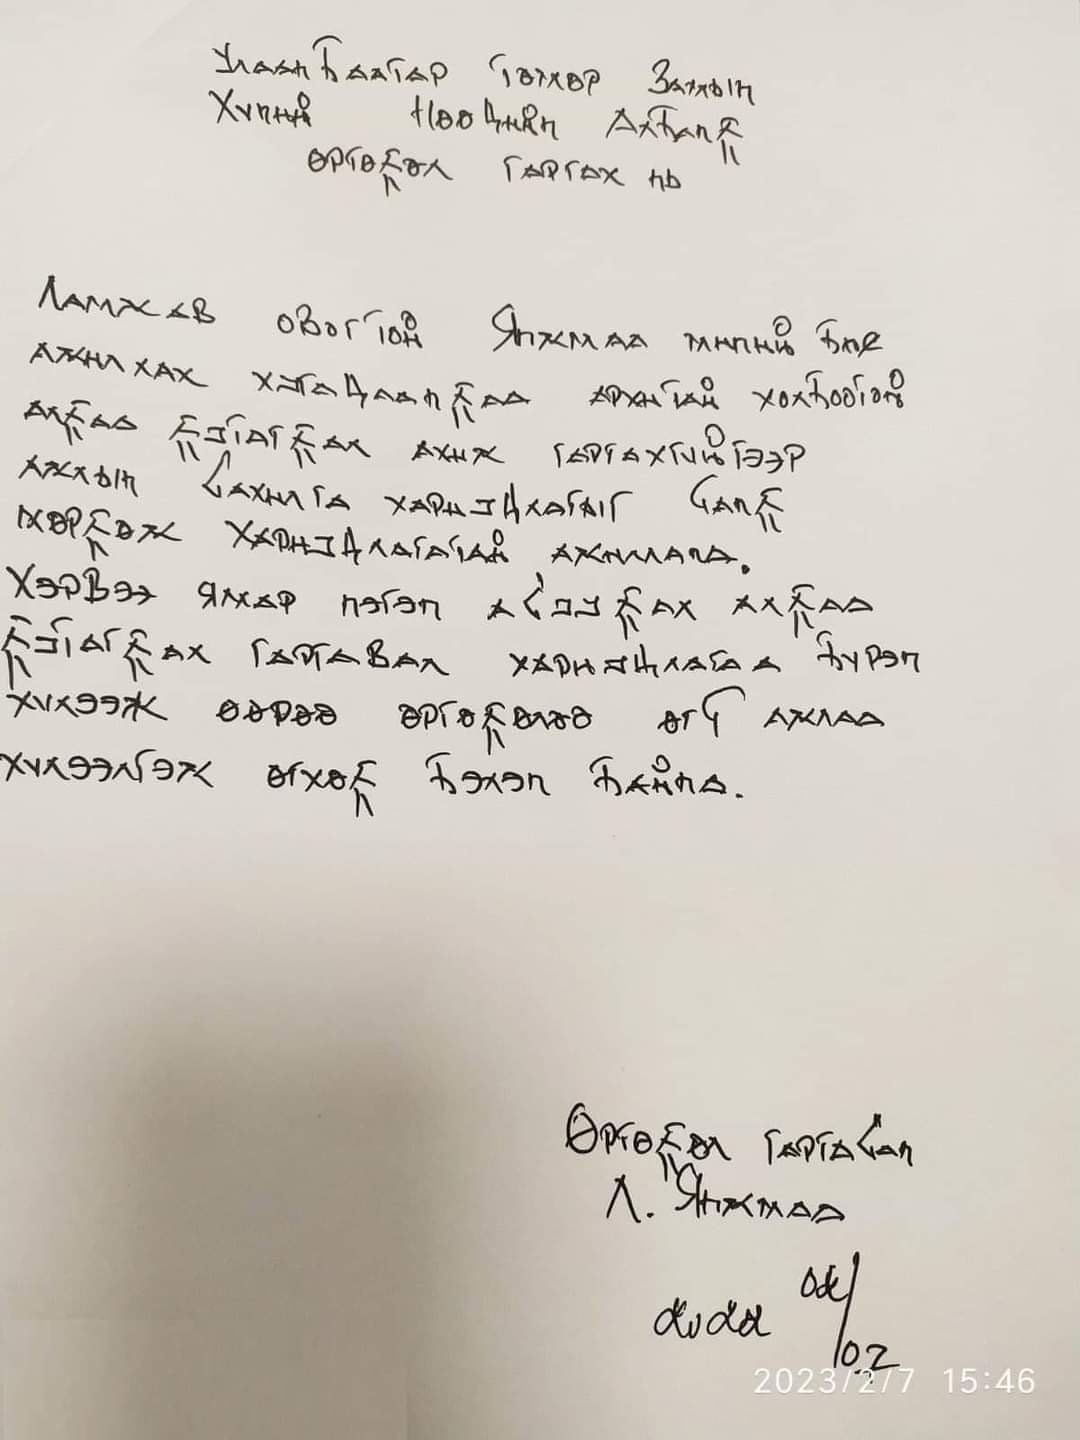 Улаанбаатар Төмөр Замын
Хүний Нөөцийн Албанд
өргөдөл гаргах нь
Ламжав овогтой Янжмаа миний бие
ажиллах хугацаандаа архитай холбоотой
алдаа дутагдал ахиж гаргахгүйгээр
ажлын сахилга хариуцлагыг санд
хөрдөж хариуцлагатай ажиллана.
Хэрвээ ямар нэгэн асуудал алдаа
дутагдал гаргавал хариуцлагаа бүрэн
хүлээж өөрөө өргөдөлөө өгч ажлаа
хүлээлгэж өгөхөд бэлэн байна.
Өргөдөл гаргасан
Л. Янжмаа
02/07
2023/2/7 15:46